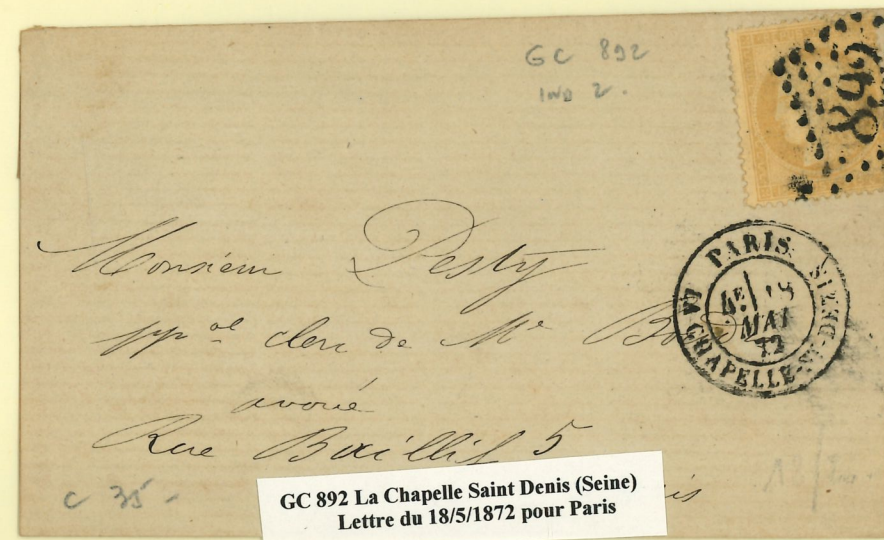 GC 892
IND 2.
PARIS
LA CHAPELLE-ST-DENIS
4E 18
MAI
72
Monsieur Pesty
ppal clerc de Me
avoué
Rue Baillif 5
C 35 -
GC 892 La Chapelle Saint Denis (Seine)
Lettre du 18/5/1872 pour Paris